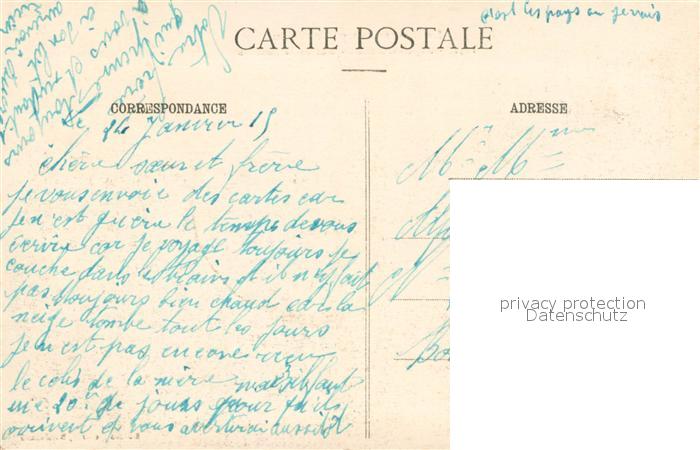 c'est les pays ou je vais
CARTE POSTALE
CORRESPONDANCE
ADRESSE
Le 24 Janvier 15
chère sœur et frère
je vous envoie des cartes car
je n'est guère le temps de vous
ecrire car je voyage toujours je
couche dans les trains et il n'y fait
pas toujours bien chaud car la
neige tombe tout les jours
je n'est pas encore reçu
le colis de la mère mais il faut
une 20e de jours pour qu'ils
arrivent et vous avertirai aussitôt
Votre frère
qui pense toujours
à vous
Mr Mme
privacy protection
Datenschutz